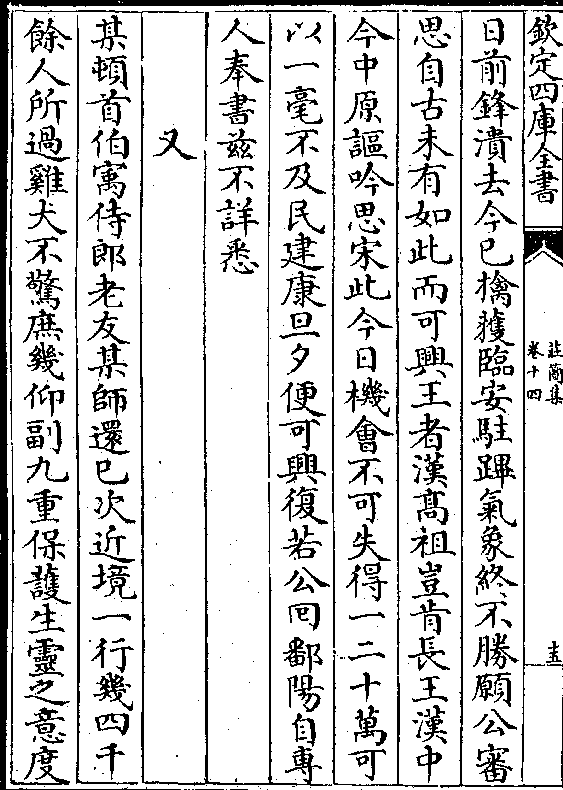 欽定四庫全書
莊簡集
卷十四
十五
日前鋒潰去今已擒獲臨安駐蹕氣象終不勝願公審
思自古未有如此而可興王者漢髙祖豈肯長王漢中
今中原謳吟思宋此今日機會不可失得一二十萬可
以一毫不及民建康旦夕便可興復若公囘鄱陽自專
人奉書兹不詳悉
又
某頓首伯寓侍郎老友某師還已次近境一行幾四千
餘人所過雞犬不驚庶幾仰副九重保護生靈之意度